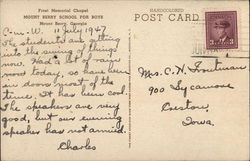 Frost Memorial Chapel
MOUNT BERRY SCHOOL FOR BOYS
Mount Berry, Georgia
HANDCOLORED
POST CARD
C-m-W. 11 July 1947
The students are getting
into the swing of things
now. Had a lot of rain
most today, so have been
in doors most of the
time. It has been cool.
The speakers are very
good, but our evening
speaker has not arrived.
Charles
Mrs. C. H. Troutman
900 Sycamore
Creston,
Iowa.
3 3